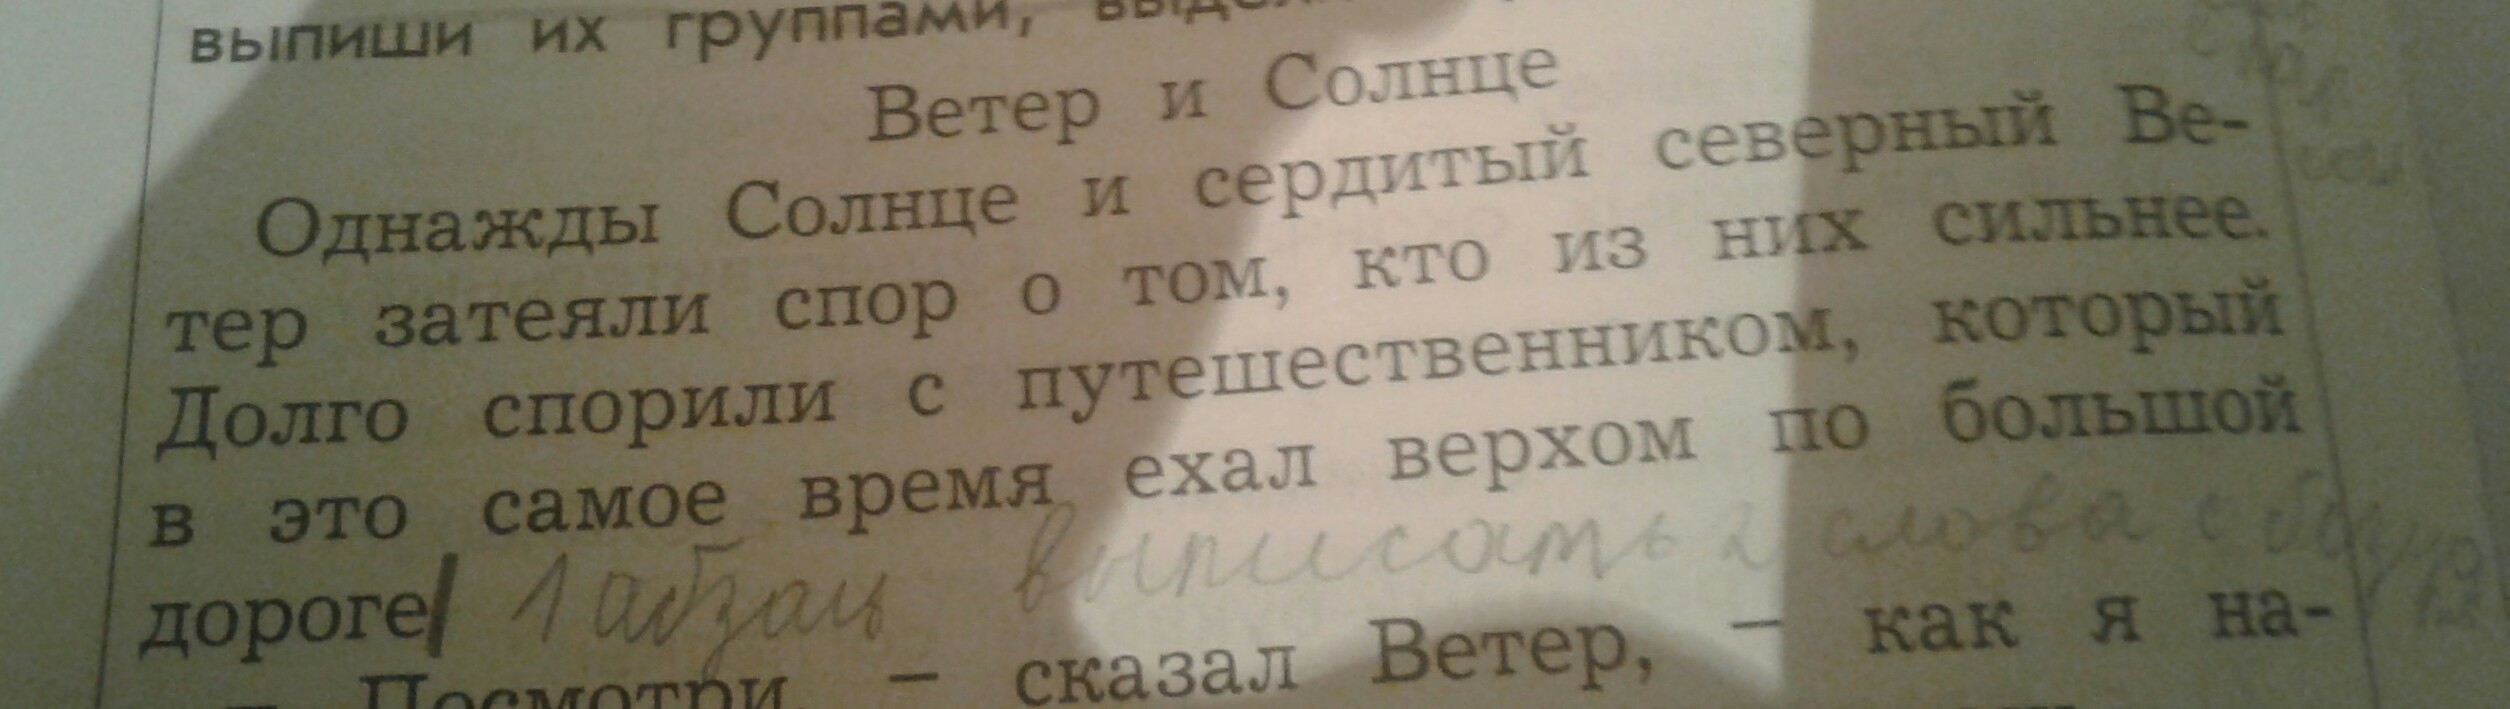 выпиши их группами,
Ветер и Солнце
Однажды Солнце и сердитый северный Ве-
тер затеяли спор о том, кто из них сильнее.
Долго спорили с путешественником, который
в это самое время ехал верхом по большой
дороге 1 абзац выписать 2 слова с
Посмотри, – сказал Ветер, – как я на-